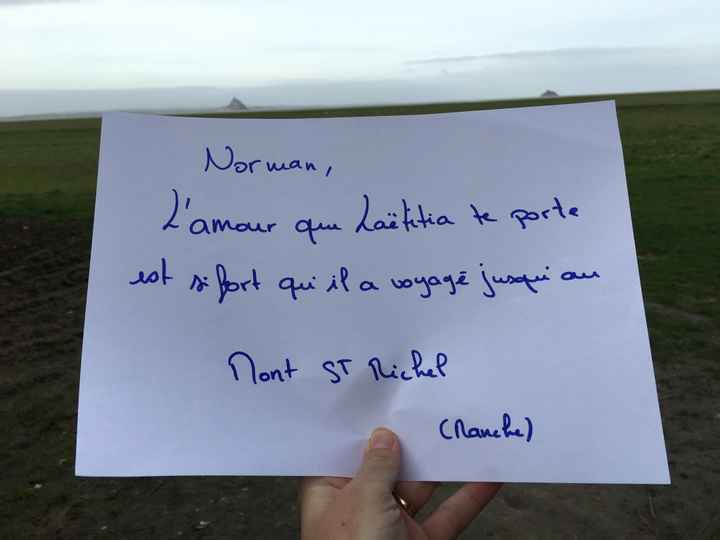 Norman,
L'amour que Laëtitia te porte
est si fort qu'il a voyagé jusqu'au
Mont ST Michel
(Manche)